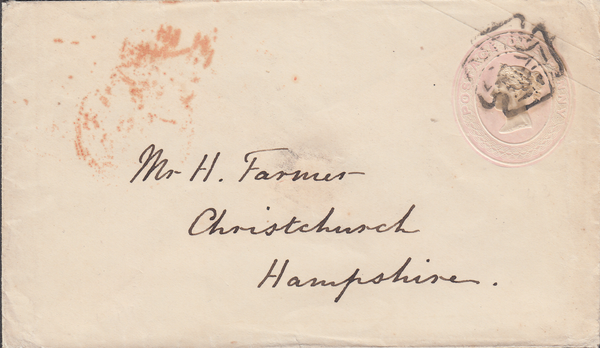 Mr H. Farmer
Christchurch
Hampshire.